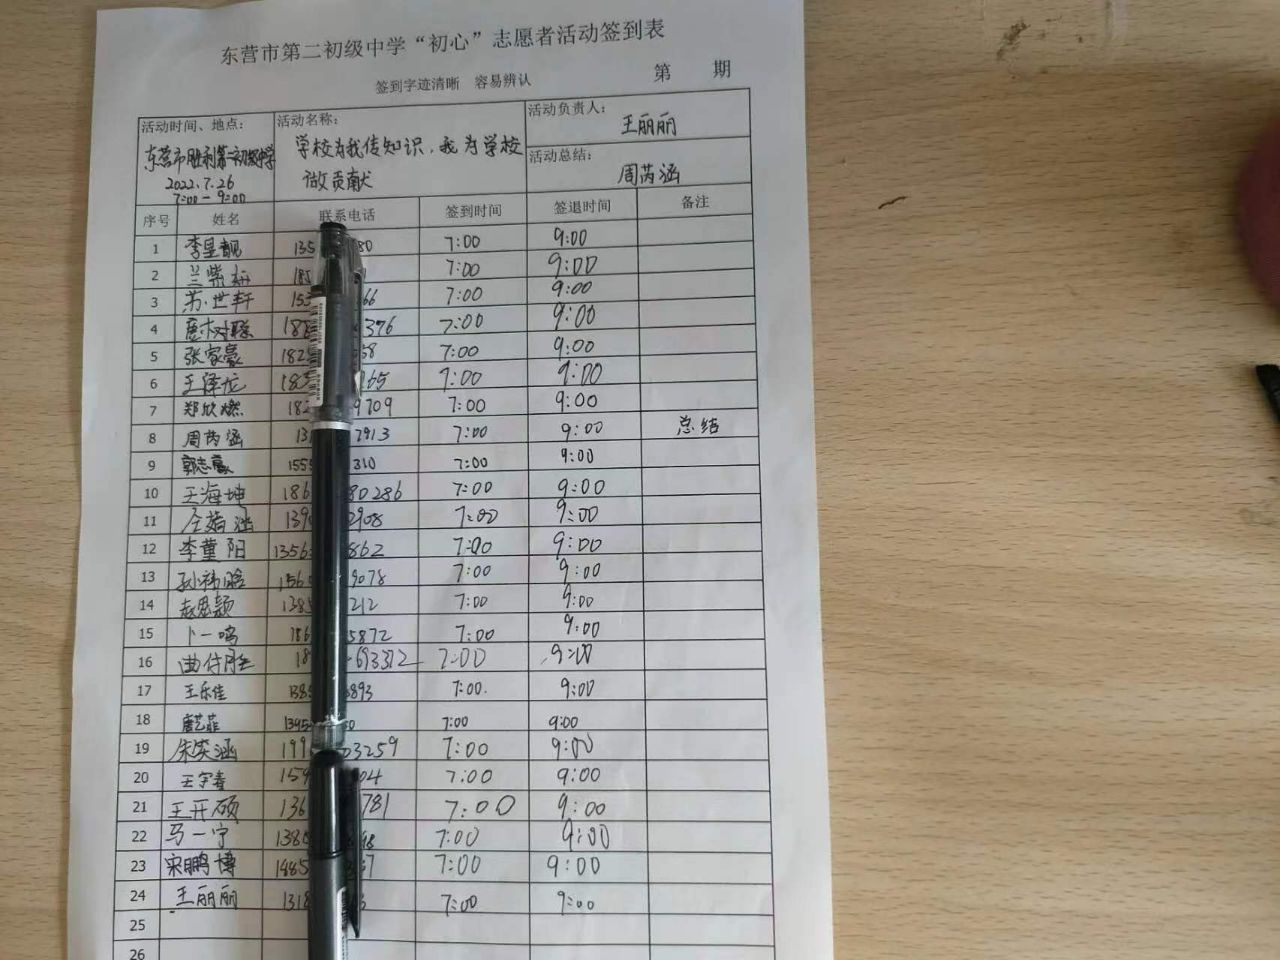 东营市第二初级中学“初心”志愿者活动签到表
签到字迹清晰 容易辨认 第 期
活动时间、地点： 活动名称： 活动负责人：
王丽丽
东营市胜利第一初级中学 学校为我传知识，我为学校
做贡献
活动总结：
周芮涵
2022.7.26
7:00-9:00
序号 姓名 联系电话 签到时间 签退时间 备注
1 135 80 7:00 9:00
2 185 7:00 9:00
3 苏世轩 153 66 7:00 9:00
4 376 7:00 9:00
5 张家豪 182 58 7:00 9:00
6 王泽龙 183 165 7:00 9:00
7 郑欣燃 182 9709 7:00 9:00
8 周芮涵 13 7913 7:00 9:00 总结
9 郭志豪 155 310 7:00 9:00
10 王海坤 186 80286 7:00 9:00
11 139 2908 7:00 9:00
12 李董阳 1356 862 7:00 9:00
13 156 9078 7:00 9:00
14 赵思颖 138 212 7:00 9:00
15 卜一鸣 186 5872 7:00 9:00
16 18 693312 7:00 9:00
17 王乐佳 138 6893 7:00 9:00
18 唐艺菲 1395 0 7:00 9:00
19 朱笑涵 199 03259 7:00 9:00
20 159 04 7:00 9:00
21 王开硕 136 781 7:00 9:00
22 马一宁 1380 98 7:00 9:00
23 宋鹏博 1485 7 7:00 9:00
24 王丽丽 1318 3 7:00 9:00
25
26